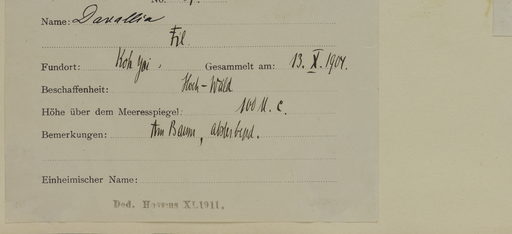 Name: Davallia
Fil.
Fundort: Koh Yai. Gesammelt am: 13. X. 1904.
Beschaffenheit: Hoch-Wald
Höhe über dem Meeresspiegel: 100 M. c.
Bemerkungen: Am Baum, absterbend.
Einheimischer Name:
Ded. Hosseus XI.1911.